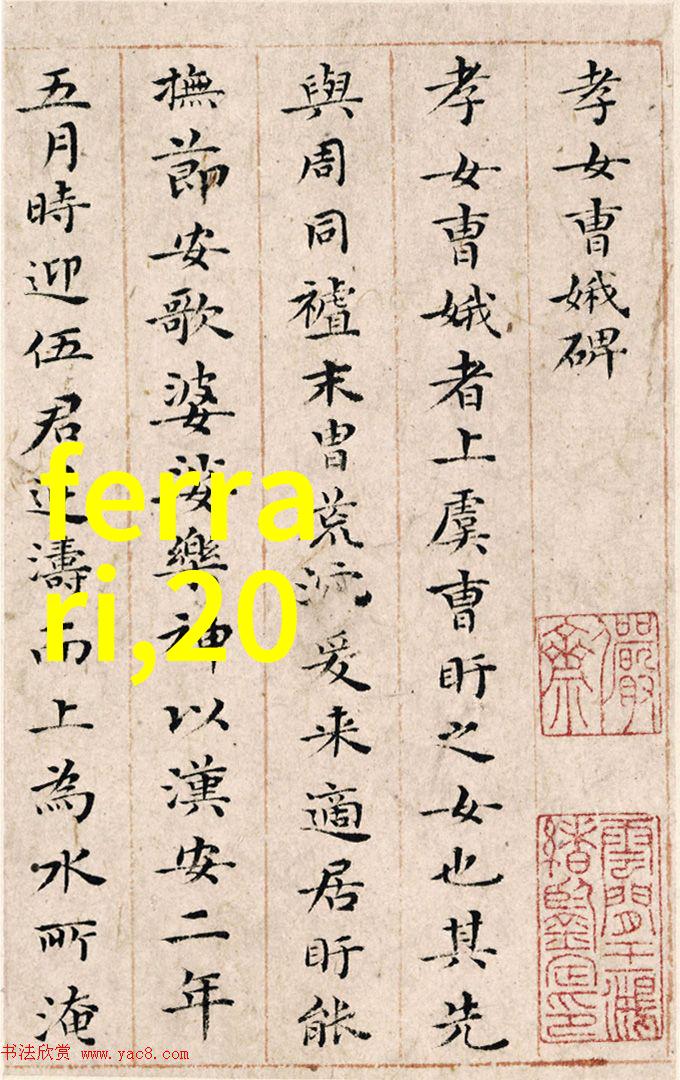 孝女曹娥碑
孝女曹娥者上虞曹盱之女也其先
與周同末胄荒沉爰来適居盱能
撫節安歌婆娑樂神以漢安二年
五月時迎伍君逆濤而上為水所淹
儼齋
雲間王鴻緒鑒定印
ferra
ri,20
书法欣赏 www.yac8.com